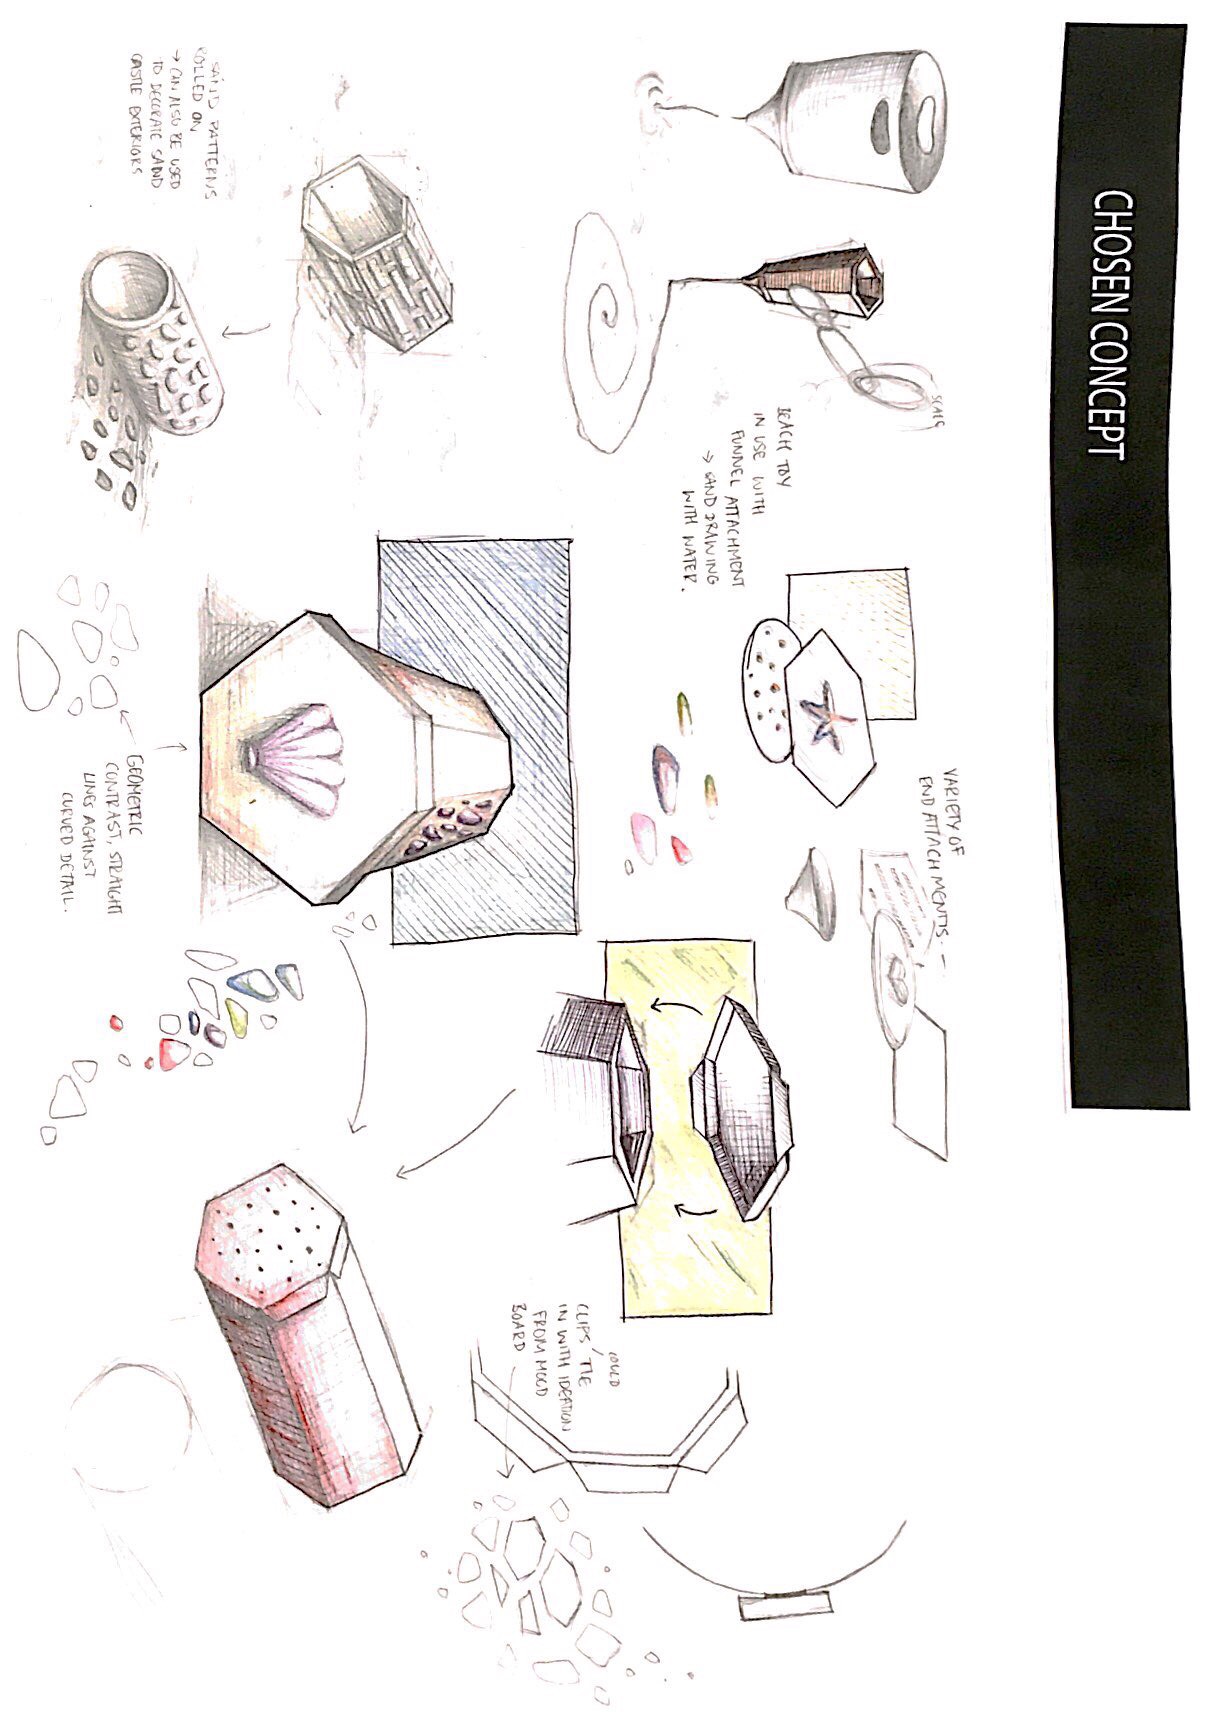 CHOSEN CONCEPT
SCALE
VARIETY OF
END ATTACHMENTS.
BEACH TOY
IN USE WITH
FUNNEL ATTACHMENT
→ SAND DRAWING
WITH WATER.
COULD
CLIPS TIE
IN WITH IDEATION
FROM MOOD
BOARD
SAND PATTERNS
ROLLED ON
→ CAN ALSO BE USED
TO DECORATE SAND
CASTLE EXTERIORS
GEOMETRIC
CONTRAST, STRAIGHT
LINES AGAINST
CURVED DETAIL.